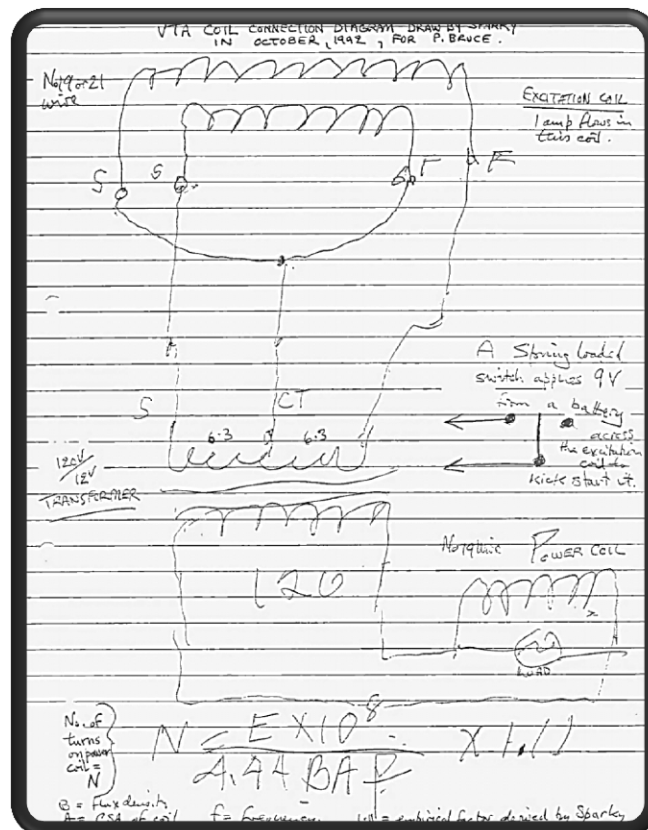 VTA COIL CONNECTION DIAGRAM DRAW BY SPARKY
IN OCTOBER, 1992, FOR P. BRUCE.
No 19 or 21
wire
EXCITATION COIL
1 amp flows in
this coil.
S
S
F
F
A Spring loaded
switch applies 9V
from a battery
across
the excitation
coil to
kick start it.
S
CT
6.3
6.3
120V
12V
TRANSFORMER
120
No 19 wire
POWER COIL
LOAD
No. of
turns
on power
coil =
N
N = E X10^8
4.44 BAF
X 1.11
B = Flux density
A = CSA of coil f = frequency = empirical factor derived by Sparky